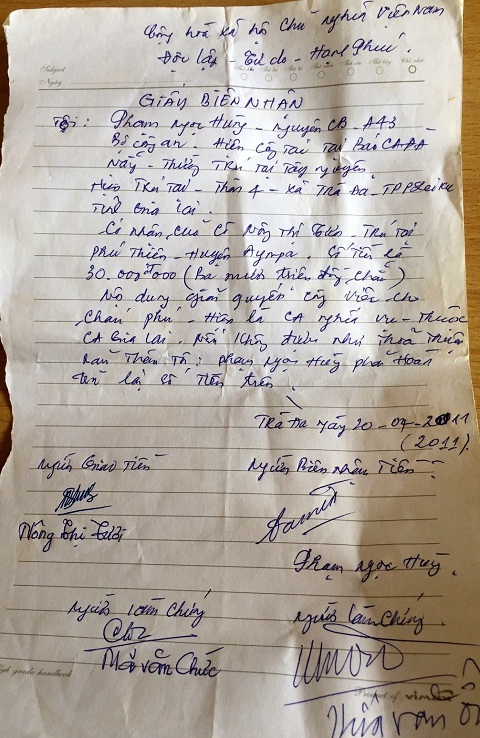 Cộng hoà xã hội Chủ nghĩa Việt Nam
Độc lập - Tự do - Hạnh Phúc.
Subject
Ngày
Chủ nhật
GIẤY BIÊN NHẬN
Tôi: Phạm Ngọc Hùng - Nguyên CB - A43 -
Bộ Công an. Hiện Công tác tại Báo CAĐN
Nẵng - Thường Trú tại Tây nguyên
Hiện Trú tại - Thôn 4 - xã Trà Đa - TP Pleiku
Tỉnh Gia Lai.
Có nhận của Cô Nông Thị Tươi - Trú tại
Phú Thiện - Huyện Ayunpa. Số Tiền là
30.000.000 (Ba mươi triệu đồng chẵn)
Nội dung giải quyết công việc cho
cháu Phú - Hiện là CA nghĩa vụ - Thuộc
CA Gia Lai. Nếu không được như thoả thuận
thân Tôi: Phạm Ngọc Hùng phải Hoàn
trả lại số Tiền trên.
Trà Đa ngày 20-07-2011
(2011).
Người Giao Tiền
Người Biên Nhận Tiền
Nông Thị Tươi
Phạm Ngọc Hùng.
Người Làm Chứng
Người Làm Chứng.
Văn Chức
high grade handbook
Product of
văn